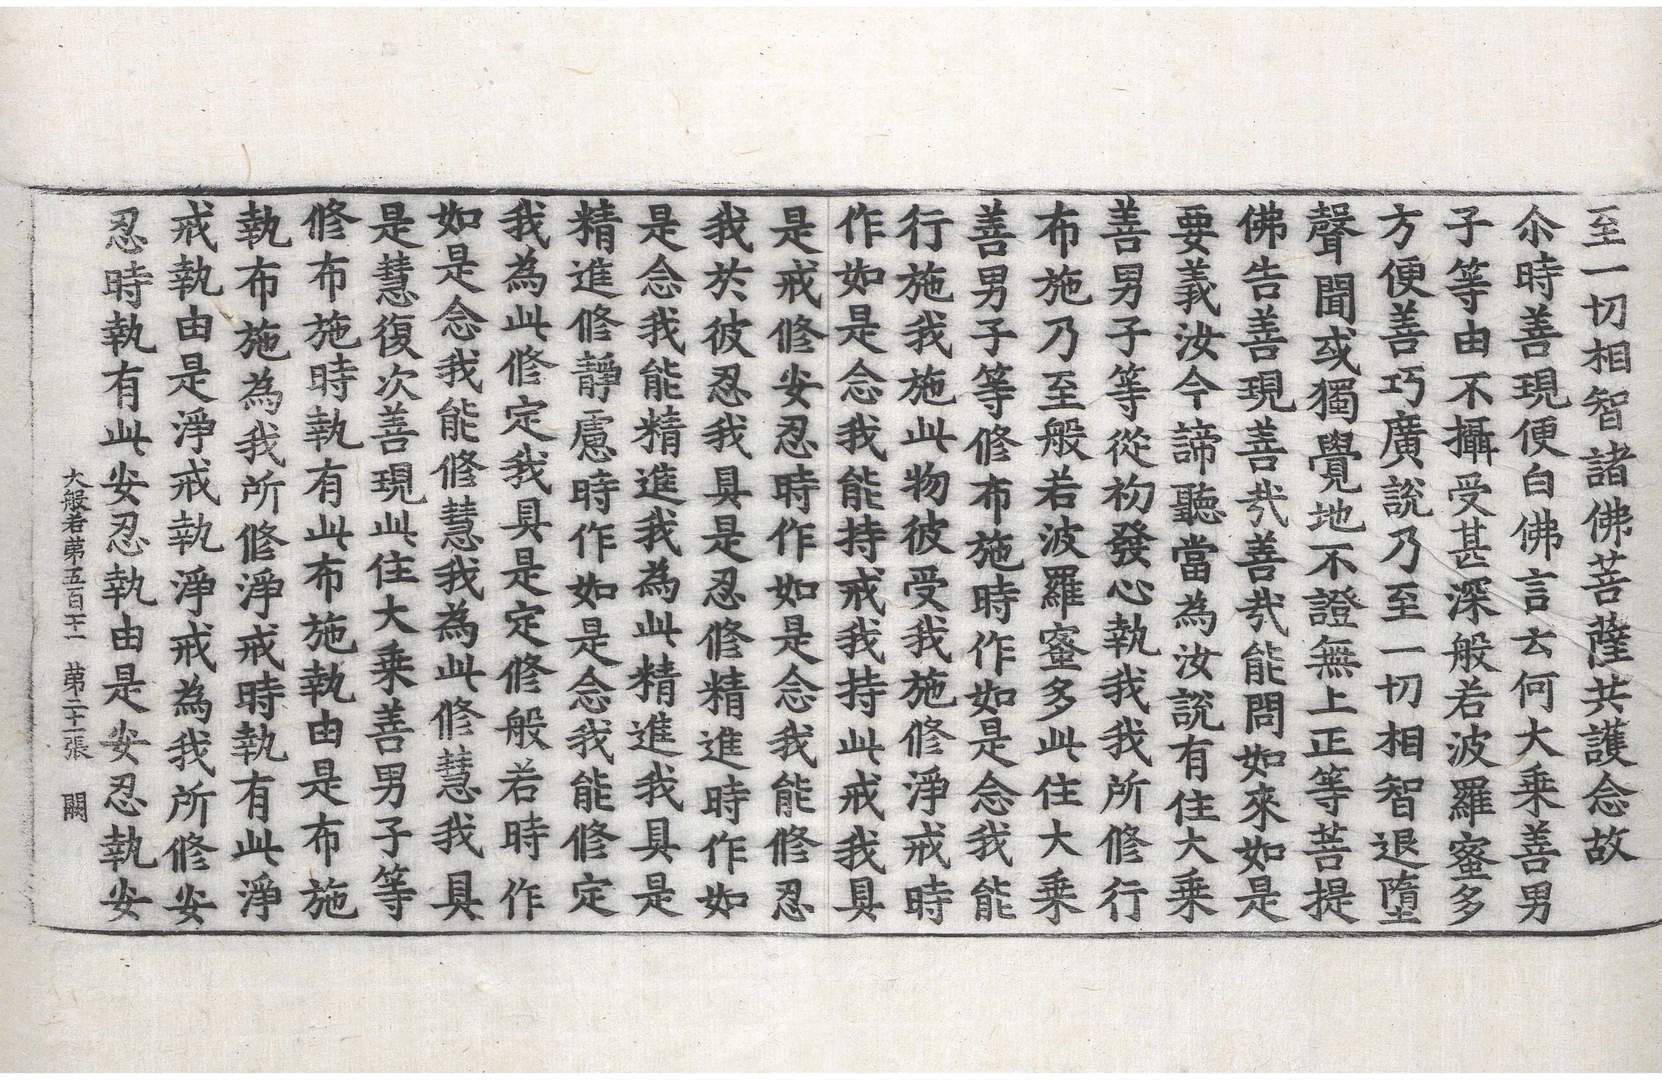 至一切相智諸佛菩薩共護念故
尒時善現便白佛言云何大乘善男
子等由不攝受甚深般若波羅蜜多
方便善巧廣說乃至一切相智退墮
聲聞或獨覺地不證無上正等菩提
佛告善現善㢤善㢤能問如來如是
要義汝今諦聽當為汝說有住大乘
善男子等從初發心執我我所修行
布施乃至般若波羅蜜多此住大乘
善男子等修布施時作如是念我能
行施我施此物彼受我施修淨戒時
作如是念我能持戒我持此戒我具
是戒修安忍時作如是念我能修忍
我扵彼忍我具是忍修精進時作如
是念我能精進我為此精進我具是
精進修靜慮時作如是念我能修定
我為此修定我具是定修般若時作
如是念我能修慧我為此修慧我具
是慧復次善現此住大乘善男子等
修布施時執有此布施執由是布施
執布施為我所修淨戒時執有此淨
戒執由是淨戒執淨戒為我所修安
忍時執有此安忍執由是安忍執安
大般若苐五百十一　苐二十一張　闕